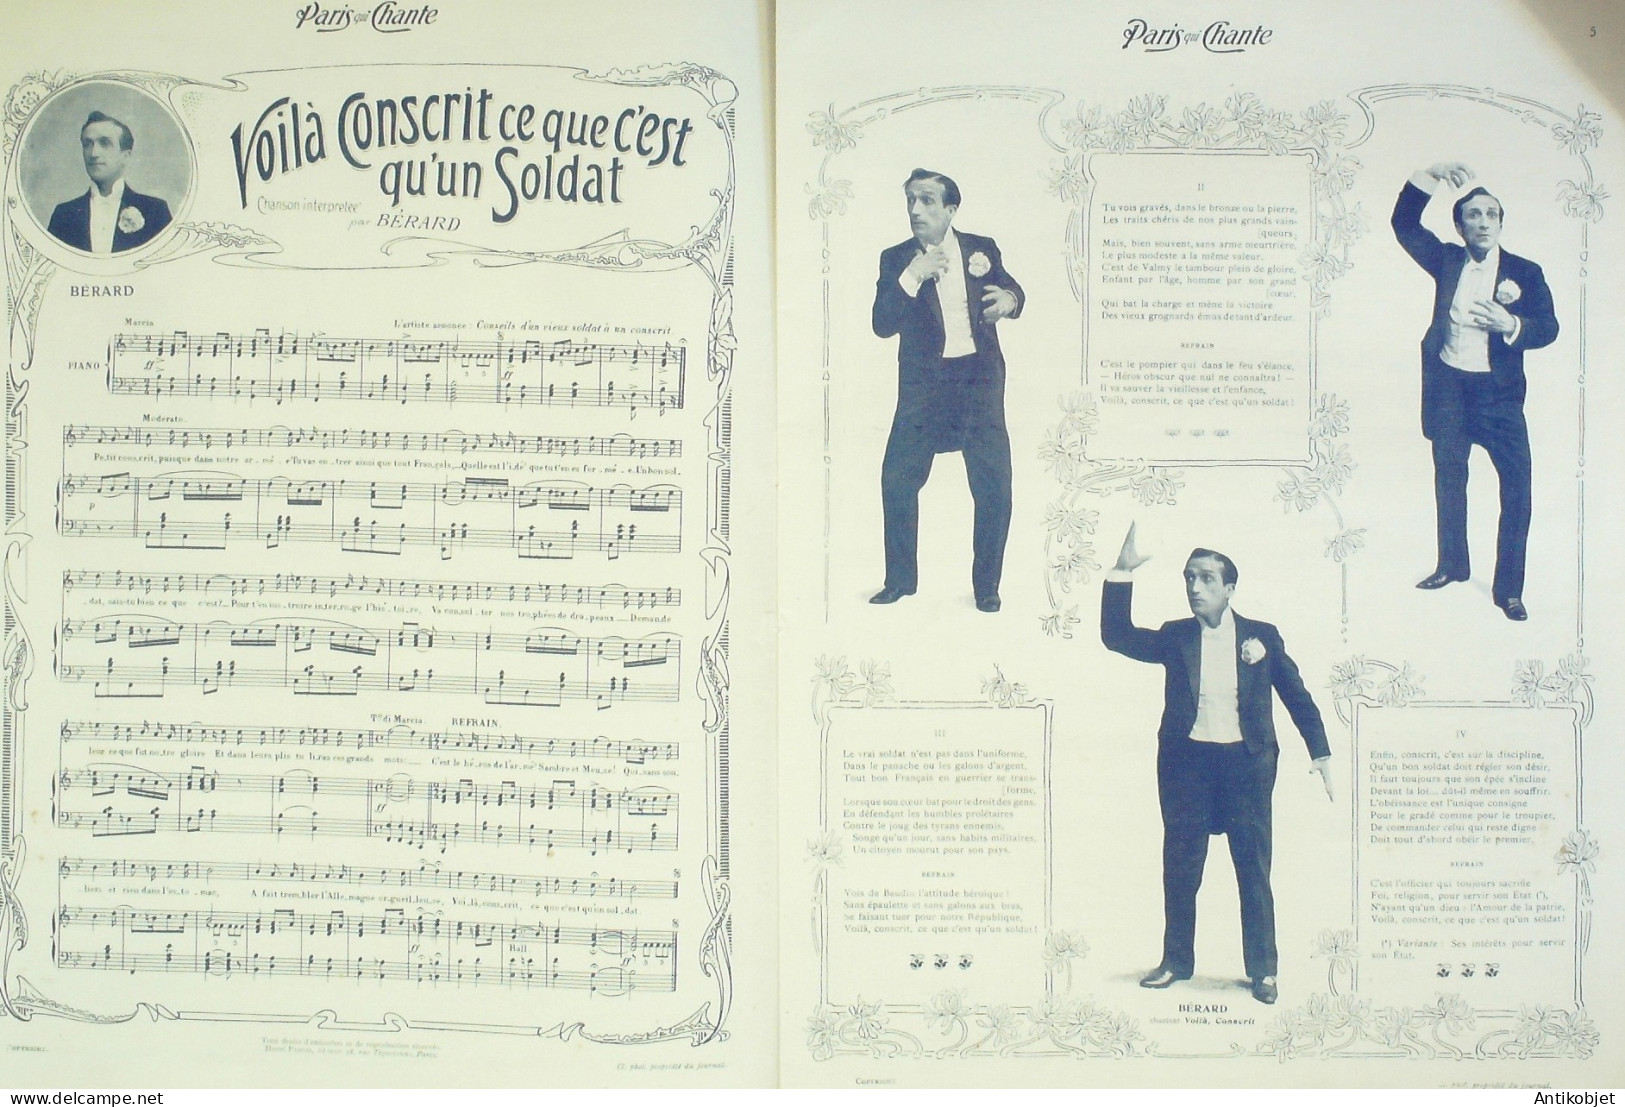 Paris qui Chante
Voilà Conscrit ce que c'est
qu'un Soldat
Chanson interpretée
par BÉRARD
BÉRARD
Marcia
L'artiste annonce : Conseils d'un vieux soldat à un conscrit.
PIANO
ff
ff
Moderato.
Pe_tit cons_crit, puisque dans notre ar_mé_e Tu vas en_trer ainsi que tout Fran_çais,_ Quelle est l'i_dé' que tu t'en es for_mé_e. Un bon sol_
p
_dat, sais-tu bien ce que c'est?_ Pour t'en ins_truire in_ter_ro_ge l'his_toi_re, Va con_sul_ter nos tro_phées de dra_peaux_ Deman_de
Tº di Marcia. REFRAIN.
leur ce que fut no_tre gloire Et dans leurs plis tu li_ras ces grands mots:_ C'est le hé_ros de l'ar_mé' Sambre et Meu_se! Qui, sans sou_
_liers et rien dans l'es_to_mac, A fait trem_bler l'Alle_magne orgueil_leu_se, Voi_là, cons_crit, ce que c'est qu'un sol_dat.
ff
Rall
Tous droits d'exécution et de reproduction réservés.
COPYRIGHT.
Cl. phot. propriété du journal.
Paris qui Chante
5
II
Tu vois gravés, dans le bronze ou la pierre,
Les traits chéris de nos plus grands vain-
[queurs;
Mais, bien souvent, sans arme meurtrière,
Le plus modeste a la même valeur.
C'est de Valmy le tambour plein de gloire,
Enfant par l'âge, homme par son grand
[cœur,
Qui bat la charge et mène la victoire
Des vieux grognards émus de tant d'ardeur.
REFRAIN
C'est le pompier qui dans le feu s'élance,
— Héros obscur que nul ne connaîtra! —
Il va sauver la vieillesse et l'enfance,
Voilà, conscrit, ce que c'est qu'un soldat!
III
Le vrai soldat n'est pas dans l'uniforme,
Dans le panache ou les galons d'argent,
Tout bon Français en guerrier se trans-
[forme,
Lorsque son cœur bat pour le droit des gens.
En défendant les humbles prolétaires
Contre le joug des tyrans ennemis,
Songe qu'un jour, sans habits militaires,
Un citoyen mourut pour son pays.
REFRAIN
Vois de Baudin l'attitude héroïque!
Sans épaulette et sans galons aux bras,
Se faisant tuer pour notre République,
Voilà, conscrit, ce que c'est qu'un soldat!
IV
Enfin, conscrit, c'est sur la discipline,
Qu'un bon soldat doit régler son désir,
Il faut toujours que son épée s'incline
Devant la loi... dût-il même en souffrir.
L'obéissance est l'unique consigne
Pour le gradé comme pour le troupier,
De commander celui qui reste digne
Doit tout d'abord obéir le premier.
REFRAIN
C'est l'officier qui toujours sacrifie
Foi, religion, pour servir son Etat (*),
N'ayant qu'un dieu : l'Amour de la patrie,
Voilà, conscrit, ce que c'est qu'un soldat!
(*) Variante : Ses intérêts pour servir
son État.
BÉRARD
chantant Voilà, Conscrit
COPYRIGHT
phot. propriété du journal.
Antikobjet